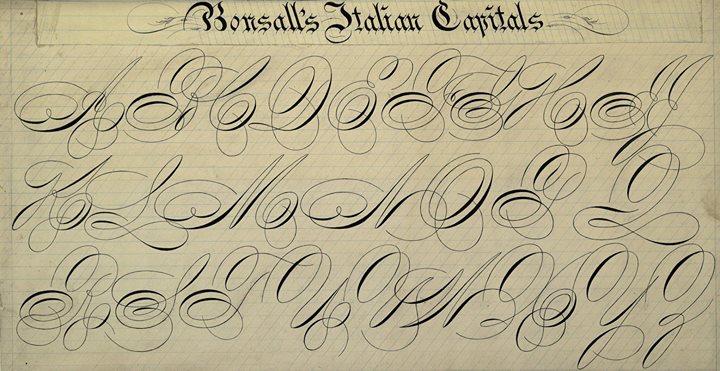 Bonsall's Italian Capitals
A B C D E F G H I J
K L M N O P Q
R S T U V W X Y Z